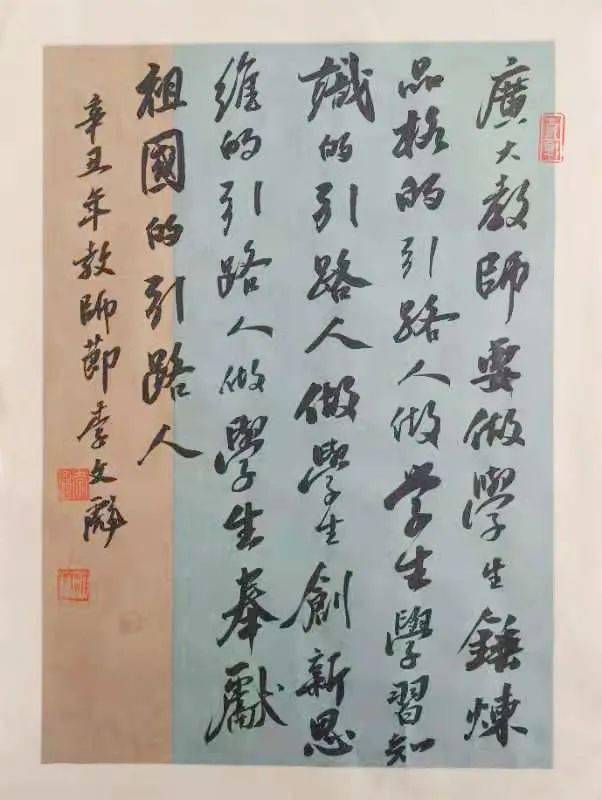 廣大教師要做學生錘煉
品格的引路人做学生學習知
識的引路人做學生創新思
維的引路人做學生奉獻
祖國的引路人
辛丑年教師節李文